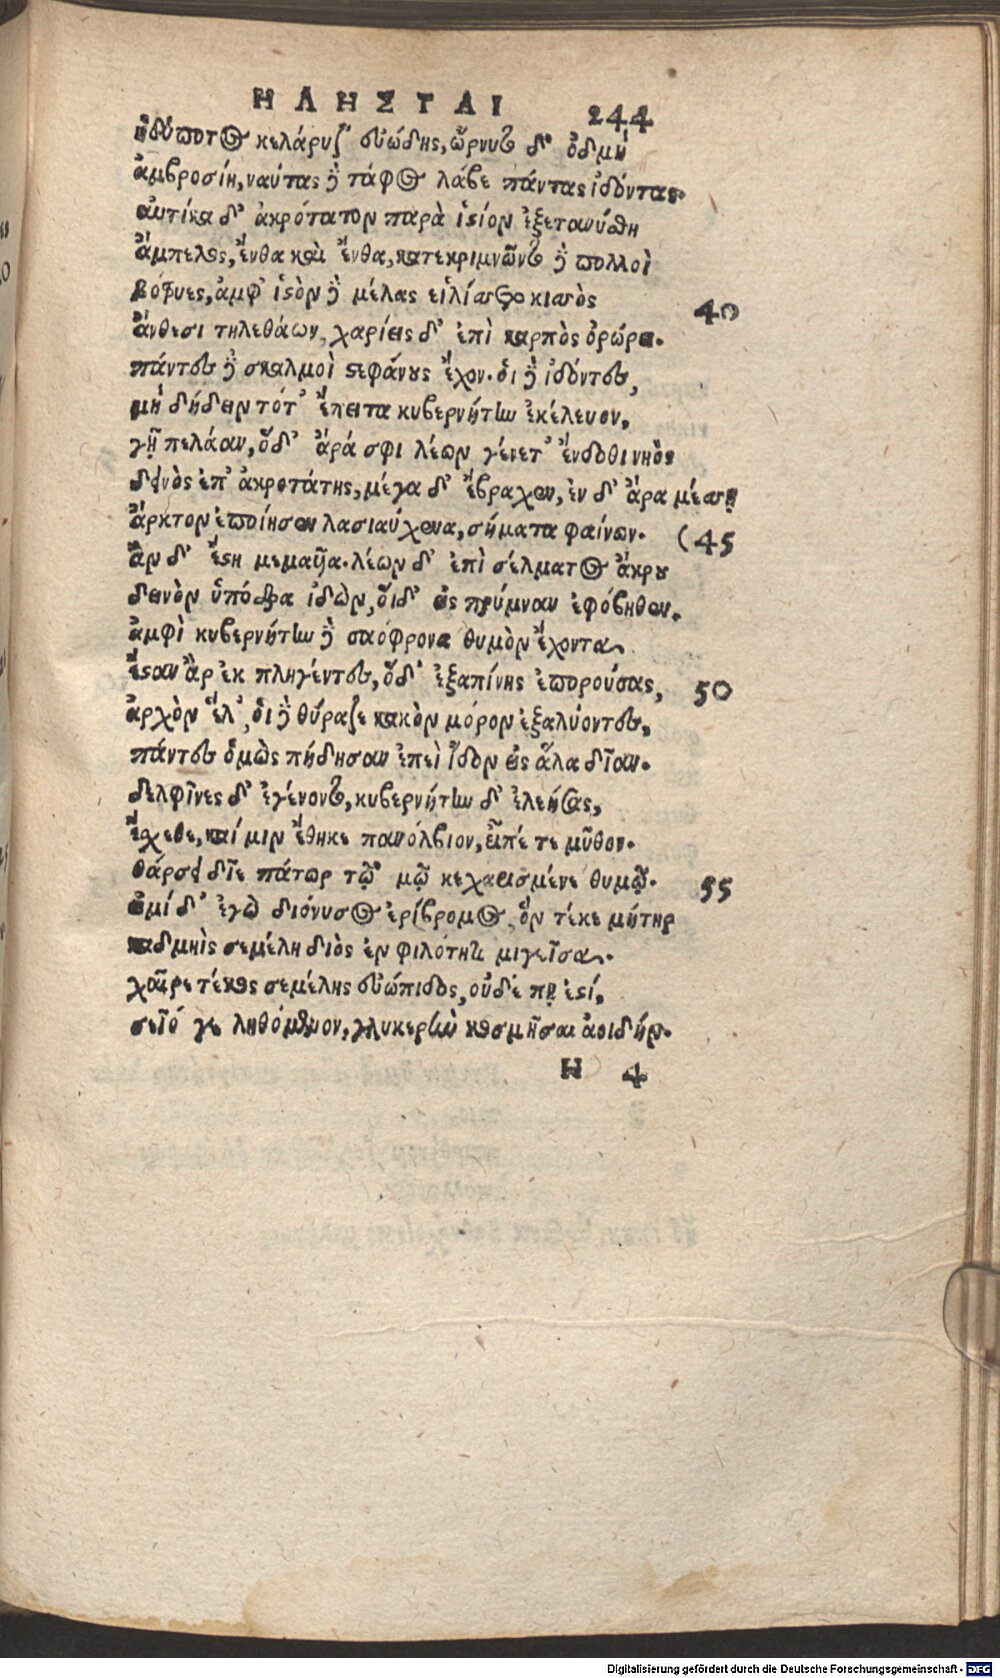 Η ΛΗΣΤΑΙ 244
ἡδύποτος κελάρυζ' εὐώδης, ὤρνυτο δ' ὀδμὴ
ἀμβροσίη, ναύτας δὲ τάφος λάβε πάντας ἰδόντας.
αὐτίκα δ' ἀκρότατον παρὰ ἱστίον ἐξετανύσθη
ἄμπελος, ἔνθα καὶ ἔνθα, κατεκριμνῶντο δὲ πολλοὶ
βότρυες, ἀμφ' ἱστὸν δὲ μέλας εἱλίσσετο κισσὸς 40
ἄνθεσι τηλεθάων, χαρίεις δ' ἐπὶ καρπὸς ὀρώρει.
πάντες δὲ σκαλμοὶ στεφάνους ἔχον. οἱ δὲ ἰδόντες,
μὴ δήδειν τότ' ἔπειτα κυβερνήτην ἐκέλευον,
γῇ πελάαν, ὅδ' ἄρά σφι λέων γένετ' ἔνδοθι νηὸς
δεινὸς ἐπ' ἀκροτάτης, μέγα δ' ἔβραχεν, ἐν δ' ἄρα μέσσῃ
ἄρκτον ἐποίησεν λασιαύχενα, σήματα φαίνων. (45
ἂν δ' ἔστη μεμαυῖα. λέων δ' ἐπὶ σέλματος ἄκρου
δεινὸν ὑπόδρα ἰδὼν, οἵδ' εἰς πρύμναν ἐφόβηθεν.
ἀμφὶ κυβερνήτην δὲ σαόφρονα θυμὸν ἔχοντα
ἔσταν ἂρ ἐκ πληγέντες, ὅδ' ἐξαπίνης ἐπορούσας, 50
ἀρχὸν ἕλ', οἱ δὲ θύραζε κακὸν μόρον ἐξαλύοντες,
πάντες ὁμῶς πήδησαν ἐπεὶ ἴδον εἰς ἅλα δῖαν.
δελφῖνες δ' ἐγένοντο, κυβερνήτην δ' ἐλεήσας,
ἔσχεθε, καί μιν ἔθηκε πανόλβιον, εἶπέ τε μῦθον.
θάρσει δῖε κάτωρ τῷ μῷ κεχαρισμένε θυμῷ. 55
εἰμί δ' ἐγὼ διόνυσος ἐρίβρομος, ὃν τέκε μήτηρ
καδμηὶς σεμέλη διὸς ἐν φιλότητι μιγεῖσα.
χαῖρε τέκος σεμέλης εὐώπιδος, οὐδέ πῃ ἐστί,
σεῖό γε ληθόμενον, γλυκερὴν κοσμῆσαι ἀοιδήν.
H 4
Digitalisierung gefördert durch die Deutsche Forschungsgemeinschaft - DFG